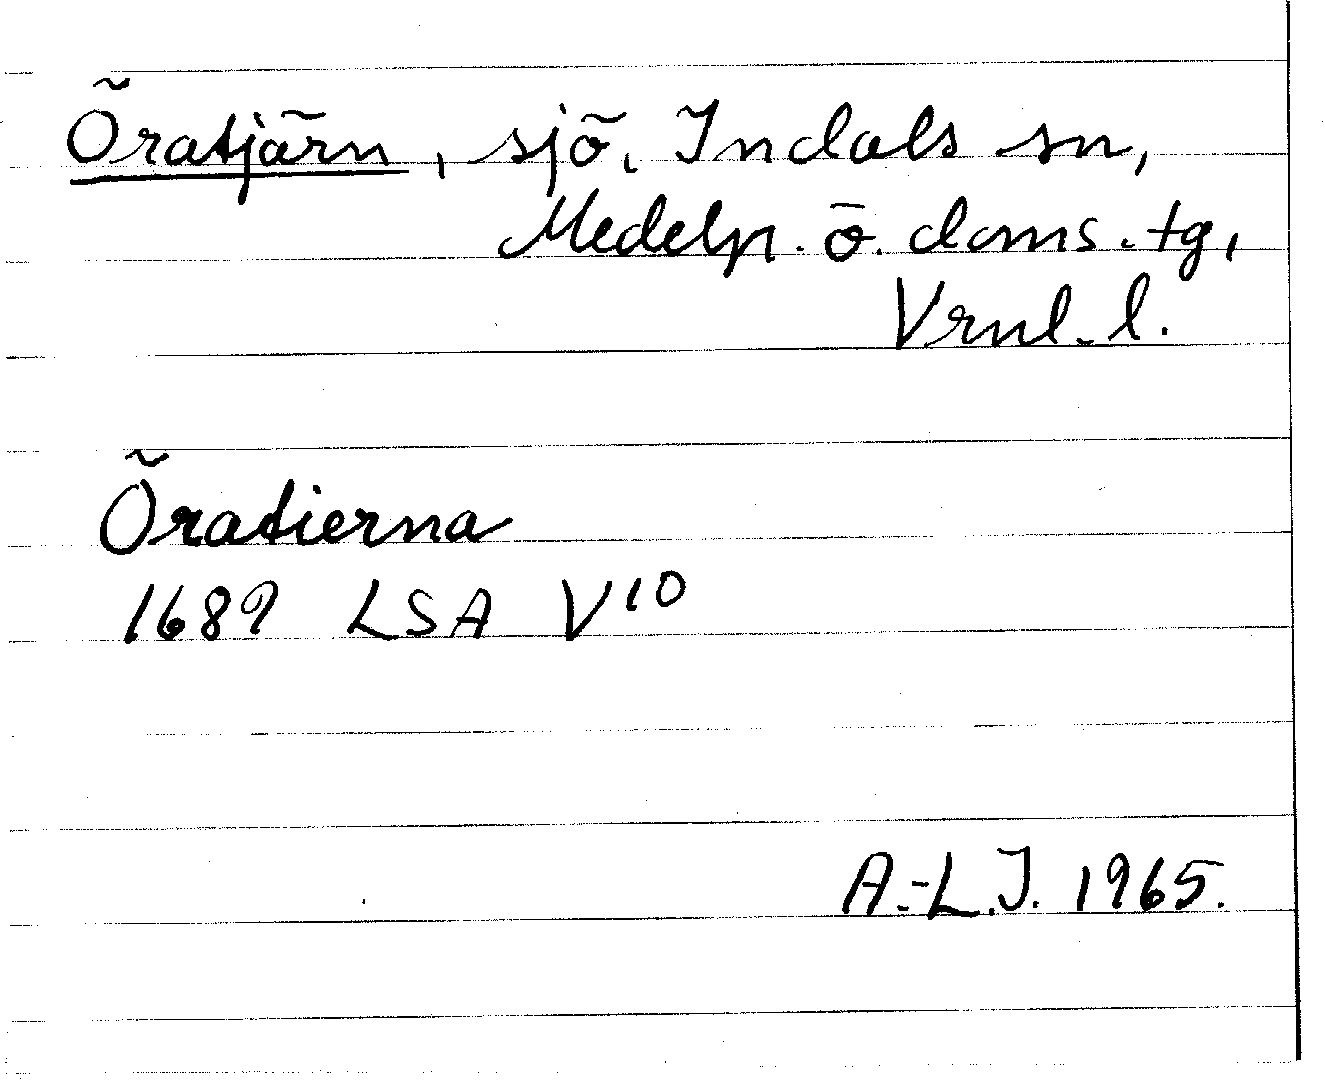 Öratjärn, sjö, Indals sn,
Medelp. ö. doms. tg,
Vrnl. l.
Öratierna
1689 LSA V10
A.-L.J. 1965.